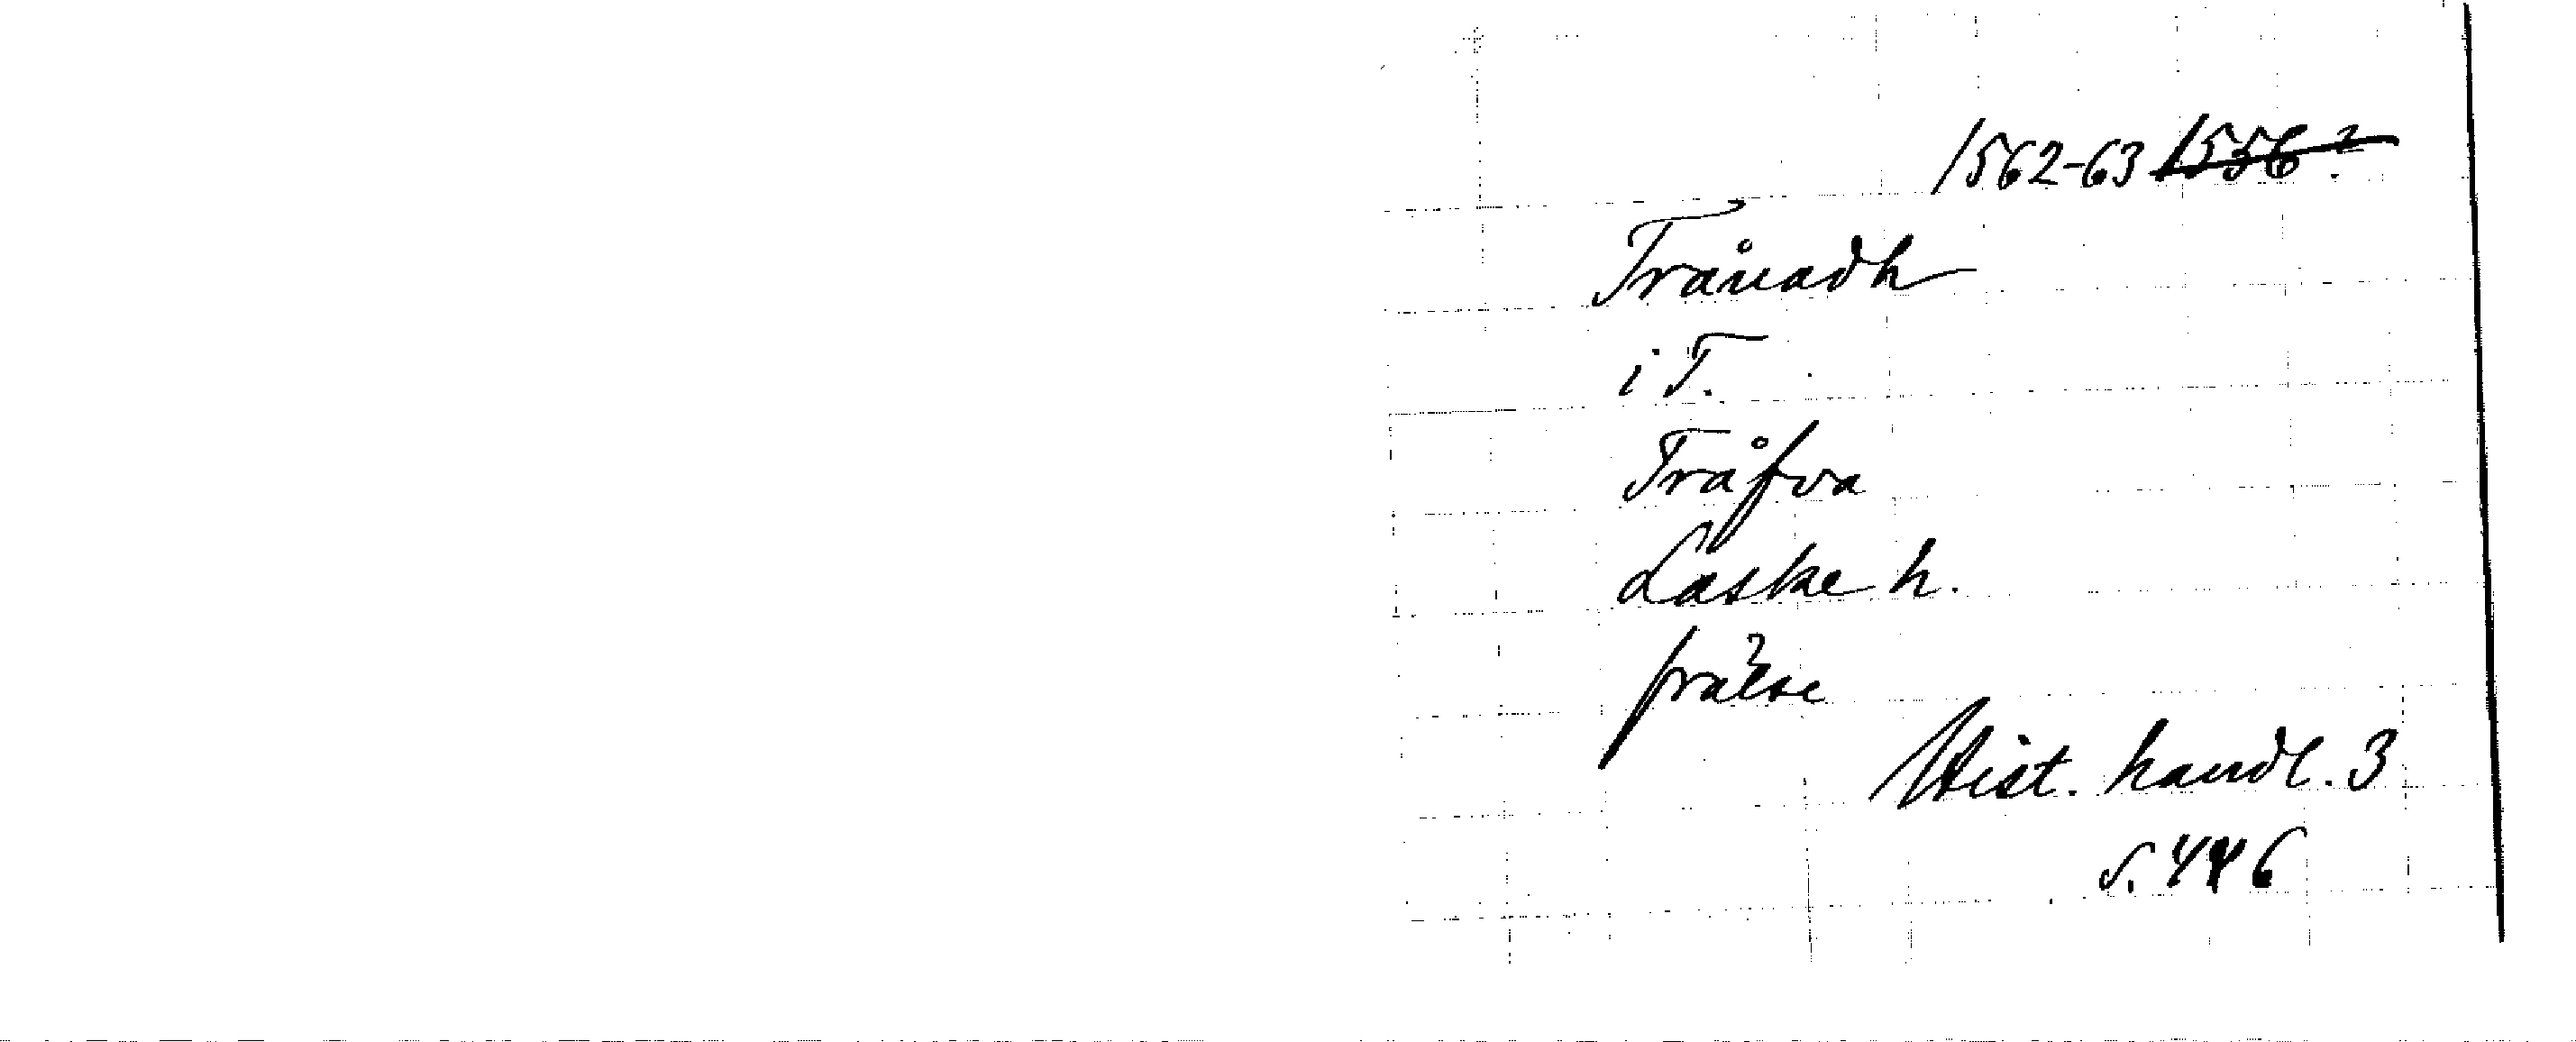 1562-63 1556?
Trånadh
i T.
Tråfva
Laske h.
frälse
Hist. handl. 3
s. 446